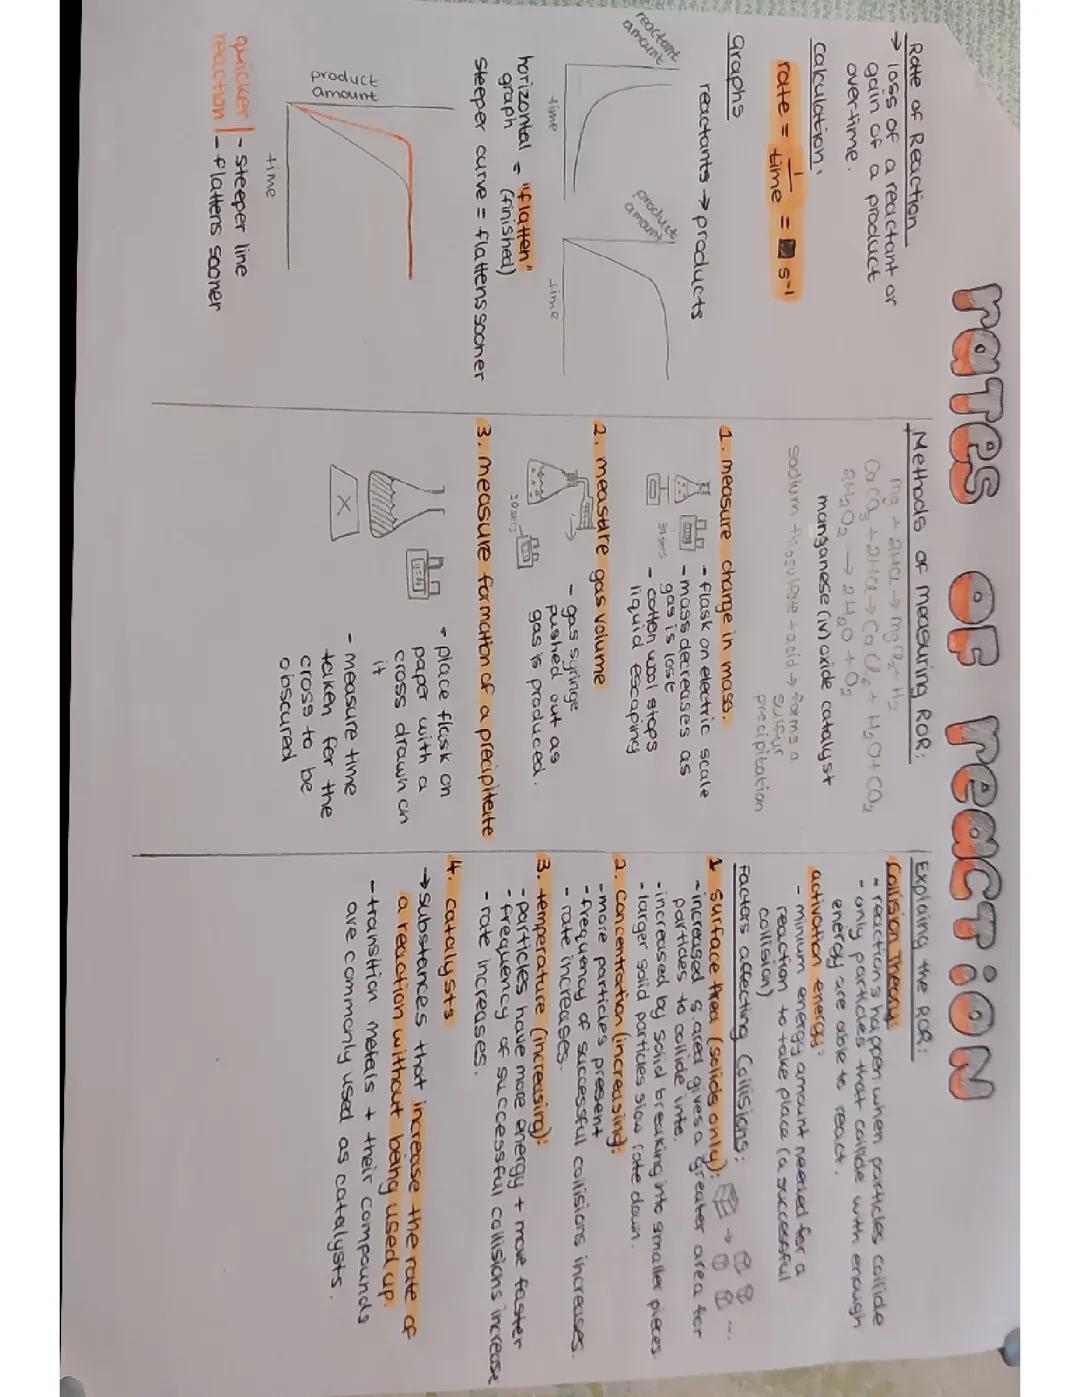 rates of reaction
Rate of Reaction
→ loss of a reactant or
gain of a product
overtime.
calculation:
rate = 1/time = s⁻¹
graphs
reactants → products
reactant
amount
time
product
amount
time
horizontal = "flatten"
graph (finished)
steeper curve = flattens sooner
product
amount
time
quicker | - steeper line
reaction | - flattens sooner
Methods of measuring ROR:
mg + 2HCl → mgCl₂ + H₂
CaCO₃ + 2HCl → CaCl₂ + H₂O + CO₂
2H₂O₂ → 2H₂O + O₂
manganese (iv) oxide catalyst
sodium thiosulfate + acid → forms a
sulfur
precipitation
1. measure change in mass.
- flask on electric scale
- mass decreases as
gas is lost
- cotton wool stops
liquid escaping
30 secs
2. measure gas volume
- gas syringe
pushed out as
gas is produced.
30 secs
3. measure formation of a precipitate
- place flask on
paper with a
cross drawn on
it
- measure time
taken for the
cross to be
obscured
X
Explaining the ROR:
Collision Theory:
- reactions happen when particles collide
- only particles that collide with enough
energy are able to react.
activation energy:
- minium energy amount needed for a
reaction to take place (a successful
collision)
Factors affecting Collisions:
1. surface Area (solids only): → ...
- increased s area gives a greater area for
particles to collide into.
- increased by solid breaking into smaller pieces
- larger solid particles slow rate down.
2. concentration (increasing):
- more particles present
- frequency of successful collisions increases.
- rate increases.
3. temperature (increasing):
- particles have more energy + move faster
- frequency of successful collisions increase
- rate increases.
4. catalysts
→ substances that increase the rate of
a reaction without being used up.
- transition metals + their compounds
are commonly used as catalysts.